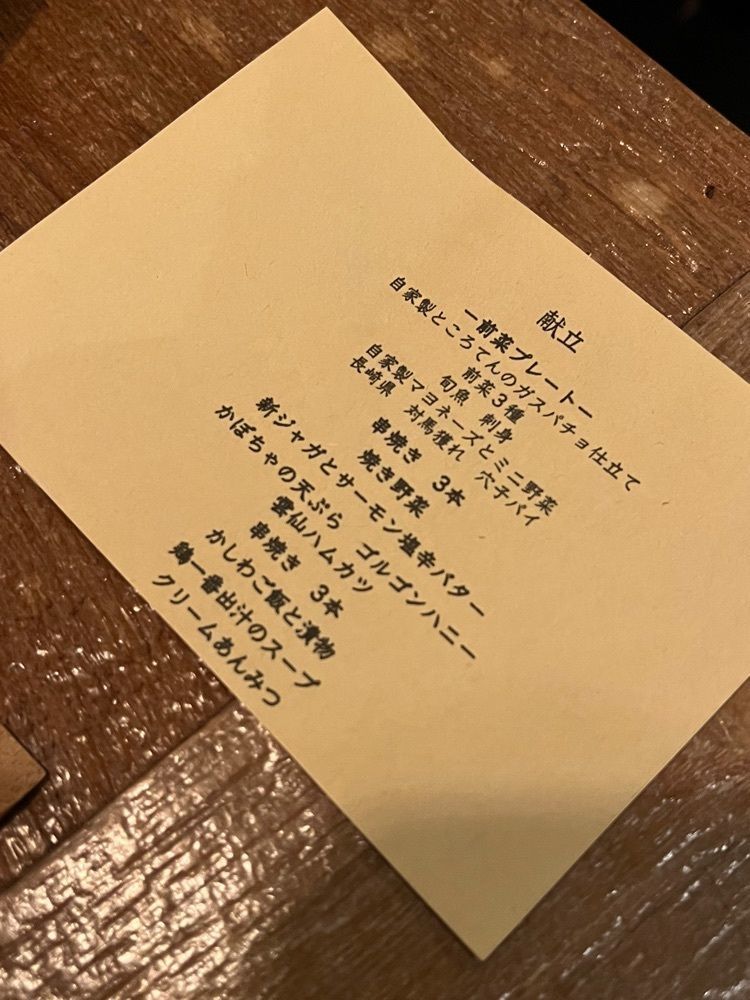 献立
ー前菜プレートー
自家製ところてんのガスパチョ仕立て
前菜3種
旬魚 刺身
自家製マヨネーズとミニ野菜
長崎県 対馬獲れ 穴子パイ
串焼き 3本
焼き野菜
新ジャガとサーモン塩辛バター
かぼちゃの天ぷら ゴルゴンハニー
雲仙ハムカツ
串焼き 3本
かしわご飯と漬物
鶏一番出汁のスープ
クリームあんみつ